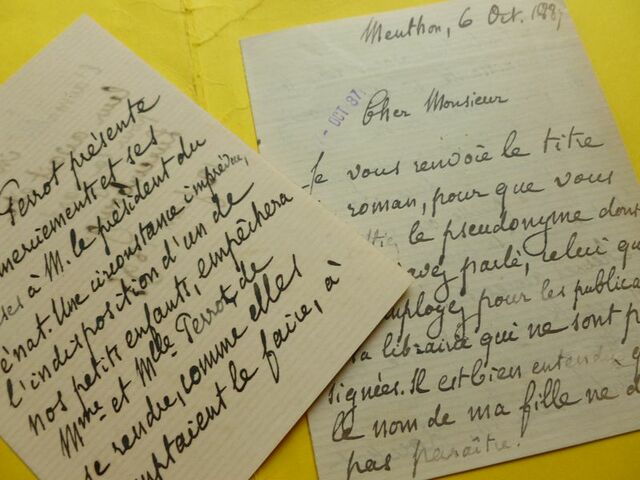 Perrot présente
merciements et ses
ses à M. le président du
énat. Une circonstance imprévue,
l'indisposition d'un de
nos petits enfants, empêchera
Mme et Mlle Perrot, de
se rendre, comme elles
mptaient le faire, à
Menthon, 6 Oct. 188
- OCT 87
Cher Monsieur
Je vous renvoie le titre
roman, pour que vous
le pseudonyme dont
avez parlé, celui qu
employez pour les publica
la librairie qui ne sont p
signées. Il est bien entendu q
le nom de ma fille ne d
pas paraître.